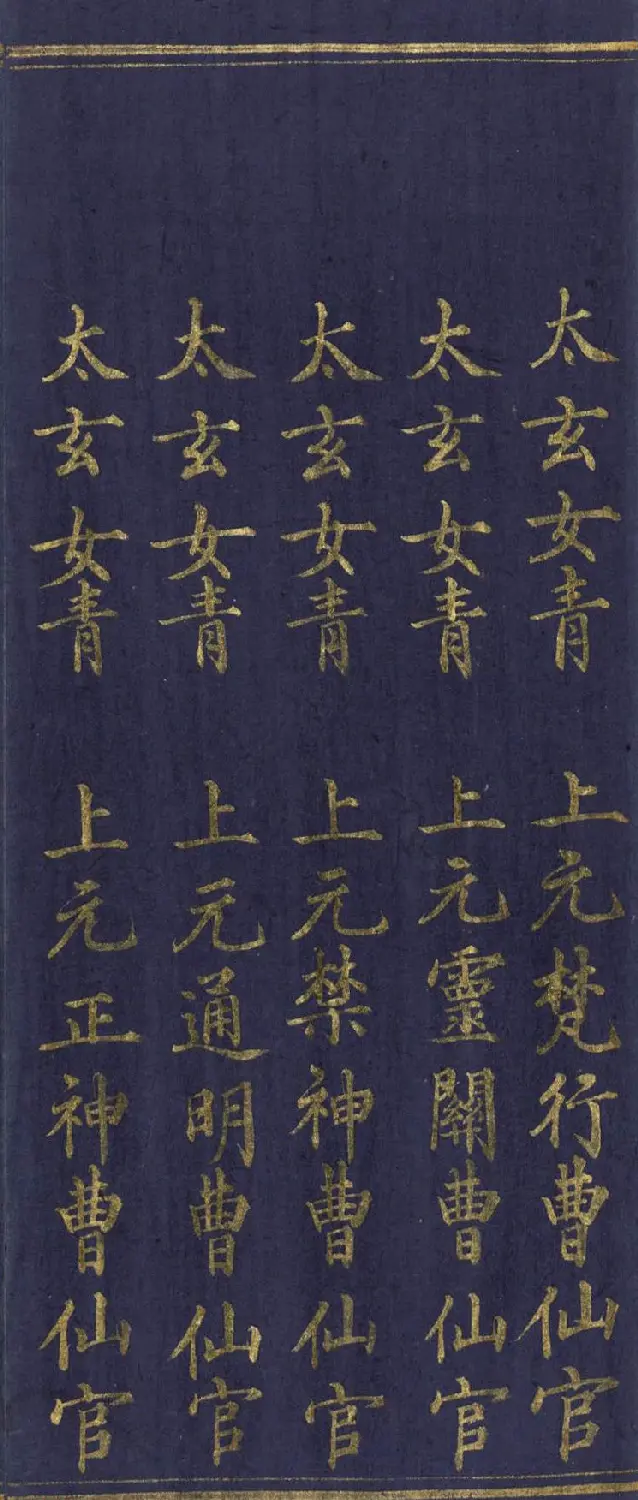 太玄女青 上元梵行曹仙官
太玄女青 上元靈關曹仙官
太玄女青 上元禁神曹仙官
太玄女青 上元通明曹仙官
太玄女青 上元正神曹仙官